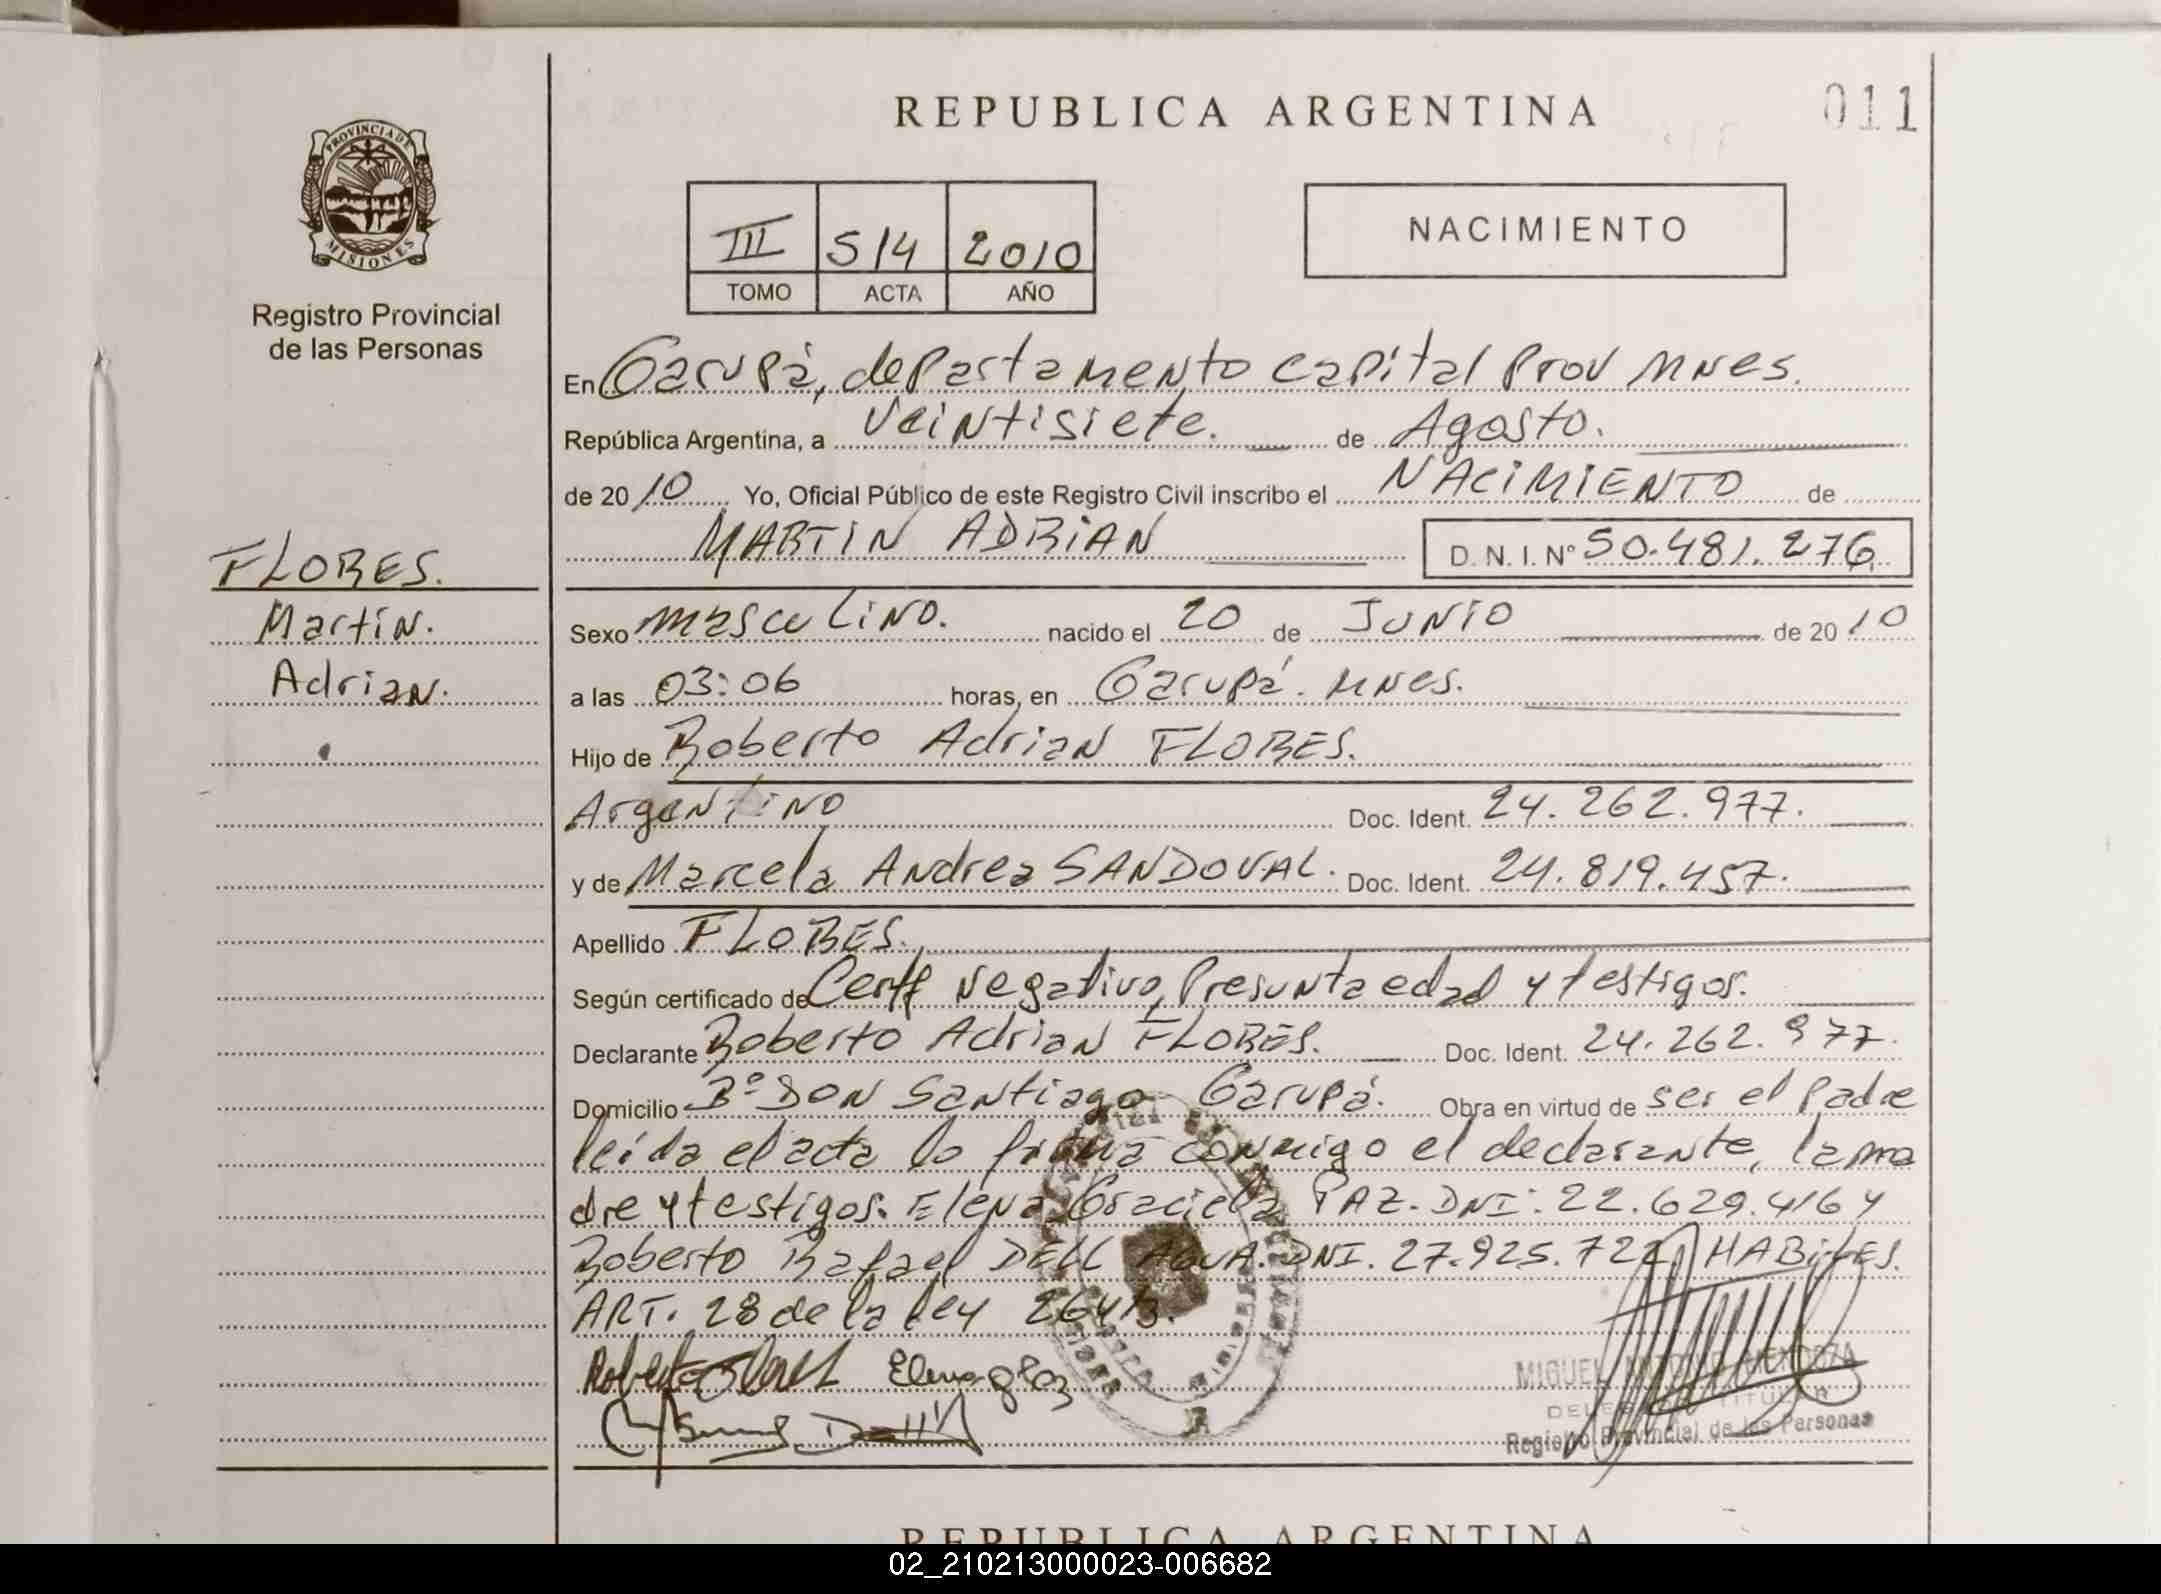 REPUBLICA ARGENTINA
011
PROVINCIA DE
MISIONES
Registro Provincial
de las Personas
III 514 2010
TOMO ACTA AÑO
NACIMIENTO
En Garupá, departamento capital Prov Mnes.
República Argentina, a veintisiete. de Agosto.
de 2010 Yo, Oficial Público de este Registro Civil inscribo el NACIMIENTO de
MARTIN ADRIAN D.N.I. Nº 50.481.276
FLORES.
Martín.
Adrian.
Sexo masculino. nacido el 20 de JUNIO de 2010
a las 03:06 horas, en Garupá. Mnes.
Hijo de Roberto Adrian FLORES.
Argentino Doc. Ident. 24.262.977.
y de Marcela Andrea SANDOVAL. Doc. Ident. 24.819.457.
Apellido FLORES.
Según certificado de Certf negativo, Presunta edad y testigos.
Declarante Roberto Adrian FLORES. Doc. Ident. 24.262.977.
Domicilio Bº DON Santiago Garupá. Obra en virtud de ser el padre
leída el acta lo firma conmigo el declarante, la ma
dre y testigos: Elena Graciela PAZ. DNI: 22.629.416 y
Roberto Rafael DELL AGUA. DNI. 27.925.722 HABILES.
ART. 28 de la ley 26413.
MIGUEL MENDOZA
DELEGADO TITULAR
Registro Provincial de las Personas
REPUBLICA ARGENTINA
02_210213000023-006682